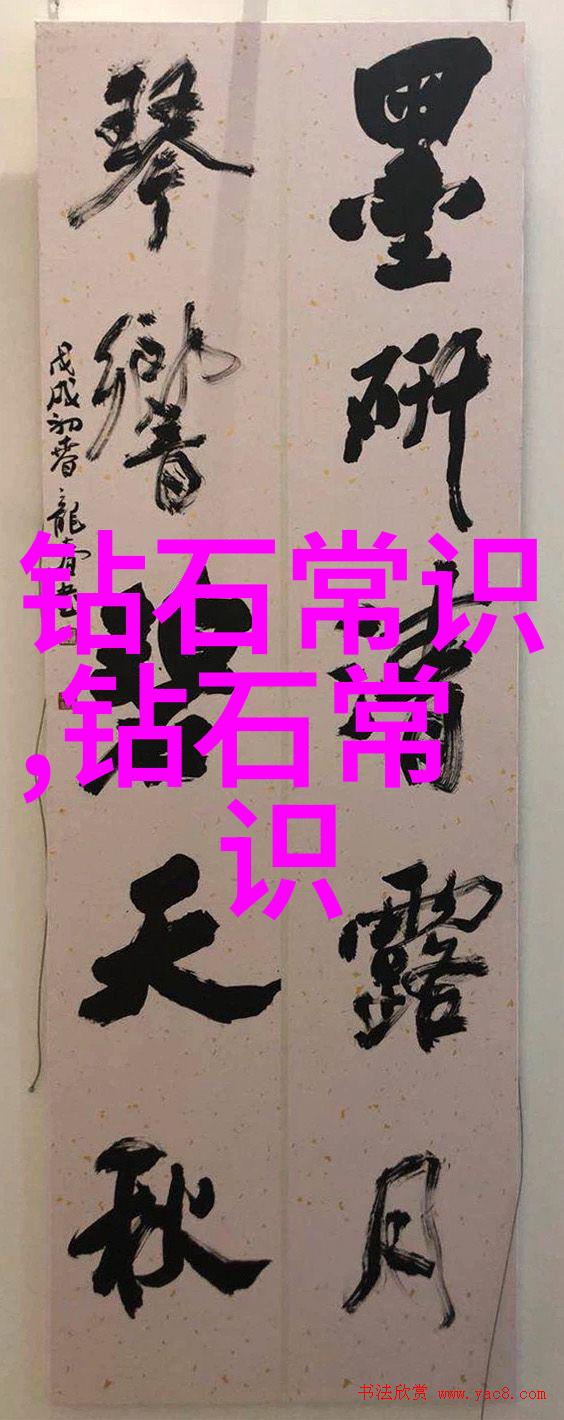 墨研清露月
琴響碧天秋
戊戌初春龍奇書
钻石常识
,钻石常
识
书法欣赏 www.yac8.com